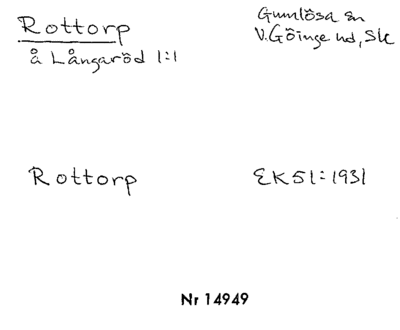 Rottorp
Gumlösa sn
å Långaröd 1:1
V. Göinge hd, Sk
Rottorp
EK 51:1931
Nr 14949